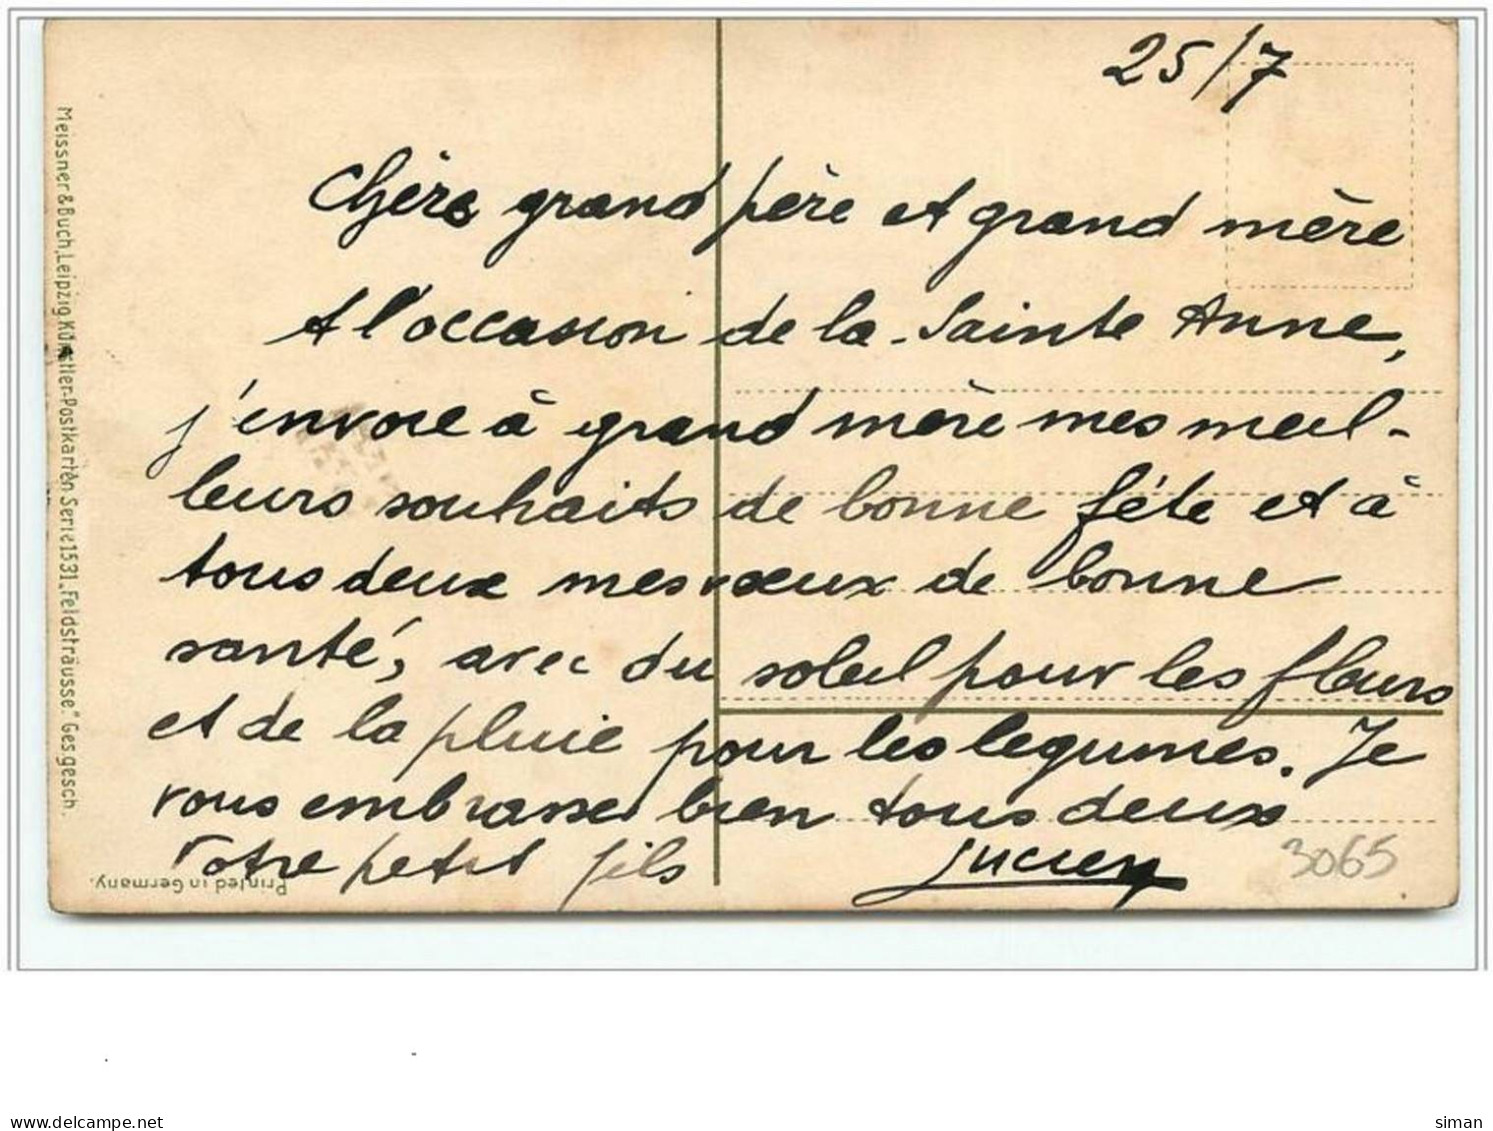 25/7
Chers grand père et grand mère
A l'occasion de la Sainte Anne,
j'envoie à grand mère mes meil-
leurs souhaits de bonne fête et à
tous deux mes vœux de bonne
santé, avec du soleil pour les fleurs
et de la pluie pour les legumes. Je
vous embrasse bien tous deux
Votre petit fils Lucien
3065
Meissner & Buch, Leipzig. Künstler-Postkarten Serie 1531. „Feldsträusse." Ges. gesch.
Printed in Germany.
www.delcampe.net
siman